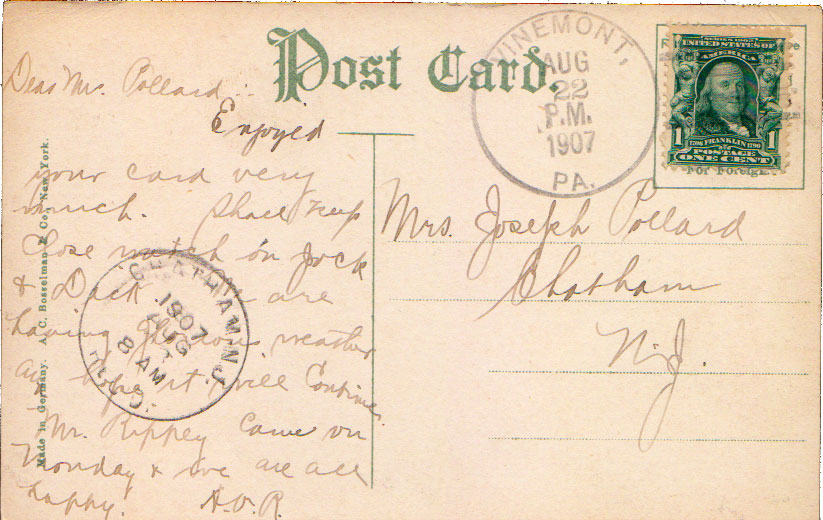 Post Card.
VINEMONT,
AUG
22
P.M.
1907
PA.
SERIES 1902
UNITED STATES OF
AMERICA
1 1706 FRANKLIN 1790 1
POSTAGE
ONE CENT
For Foreign
Dear Mrs. Pollard :-
Enjoyed
your card very
much. Shall keep
Close watch on Jack
& Dack are
having glorious weather
and hope it will Continue
Mr. Rippey Came on
Monday & we are all
happy! A.O.R.
CHATHAM N.J.
1907
AUG
8 AM
REC'D.
Mrs. Joseph Pollard
Chatham
N.J.
Made in Germany. A. C. Bosselman & Co., New York.